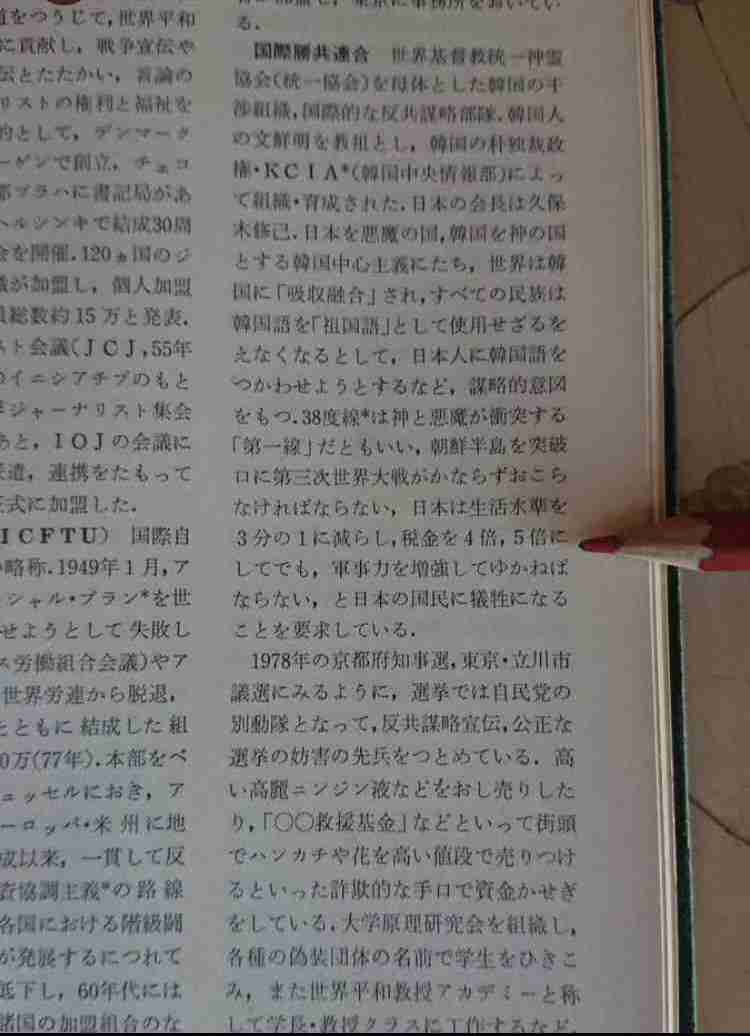 道をつうじて,世界平和
に貢献し,戦争宣伝や
伝とたたかい,言論の
リストの権利と福祉を
的として,デンマーク
ーゲンで創立,チェコ
都プラハに書記局があ
ヘルシンキで結成30周
会を開催.120ヵ国のジ
議が加盟し,個人加盟
員総数約15万と発表.
スト会議(JCJ,55年
のイニシアチブのもと
ジャーナリスト集会
あと,IOJの会議に
派遣,連携をたもって
正式に加盟した.
ICFTU) 国際自
略称.1949年1月,ア
シャル・プラン*を世
せようとして失敗し
ス労働組合会議)やア
世界労連から脱退,
とともに結成した組
0万(77年).本部をベ
ュッセルにおき,ア
ーロッパ・米州に地
成以来,一貫して反
資協調主義*の路線
各国における階級闘
が発展するにつれて
低下し,60年代には
諸国の加盟組合のな
東京に事務所をおいてい
る.
国際勝共連合 世界基督教統一神霊
協会(統一協会)を母体とした韓国の干
渉組織,国際的な反共謀略部隊.韓国人
の文鮮明を教祖とし,韓国の朴独裁政
権・KCIA*(韓国中央情報部)によっ
て組織・育成された.日本の会長は久保
木修己.日本を悪魔の国,韓国を神の国
とする韓国中心主義にたち,世界は韓
国に「吸収融合」され,すべての民族は
韓国語を「祖国語」として使用せざるを
えなくなるとして,日本人に韓国語を
つかわせようとするなど,謀略的意図
をもつ.38度線*は神と悪魔が衝突する
「第一線」だともいい,朝鮮半島を突破
口に第三次世界大戦がかならずおこら
なければならない,日本は生活水準を
3分の1に減らし,税金を4倍,5倍に
してでも,軍事力を増強してゆかねば
ならない,と日本の国民に犠牲になる
ことを要求している.
1978年の京都府知事選,東京・立川市
議選にみるように,選挙では自民党の
別動隊となって,反共謀略宣伝,公正な
選挙の妨害の先兵をつとめている.高
い高麗ニンジン液などをおし売りした
り,「○○救援基金」などといって街頭
でハンカチや花を高い値段で売りつけ
るといった詐欺的な手口で資金かせぎ
をしている.大学原理研究会を組織し,
各種の偽装団体の名前で学生をひきこ
み,また世界平和教授アカデミーと称
して学長・教授クラスに工作するなど